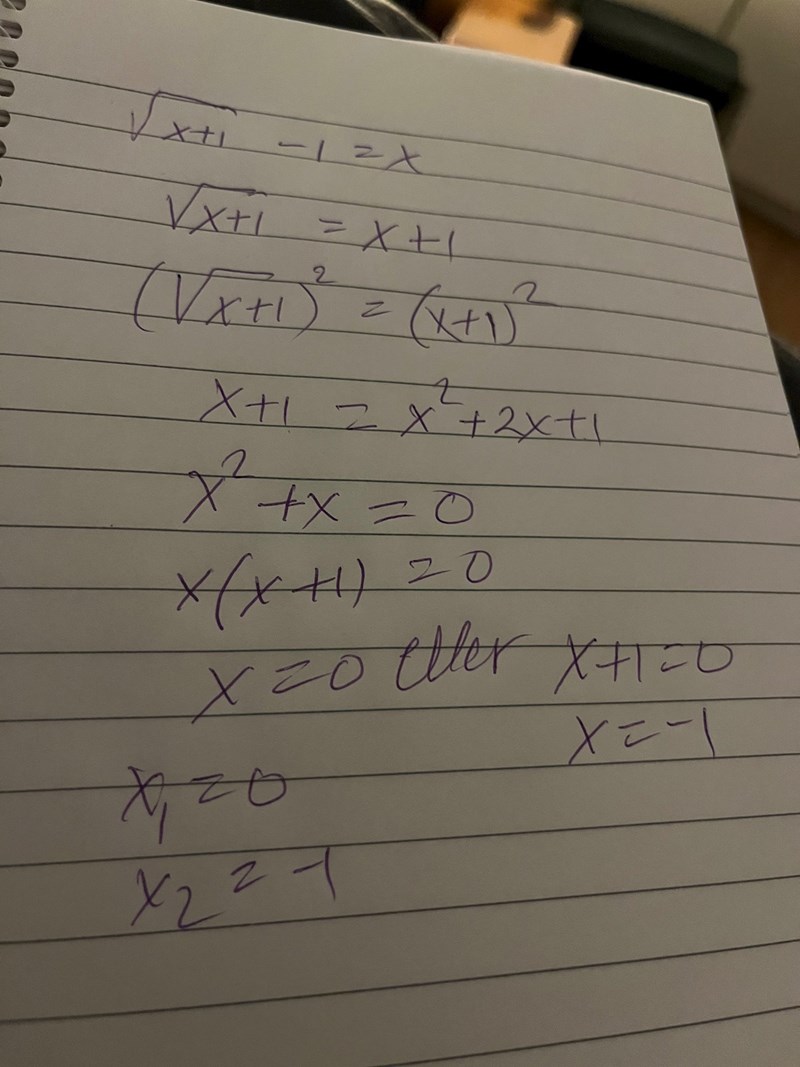 √(x+1) - 1 = x
√(x+1) = x+1
(√(x+1))² = (x+1)²
x+1 = x²+2x+1
x²+x = 0
x(x+1) = 0
x=0 eller x+1=0
x=-1
x₁ = 0
x₂ = -1